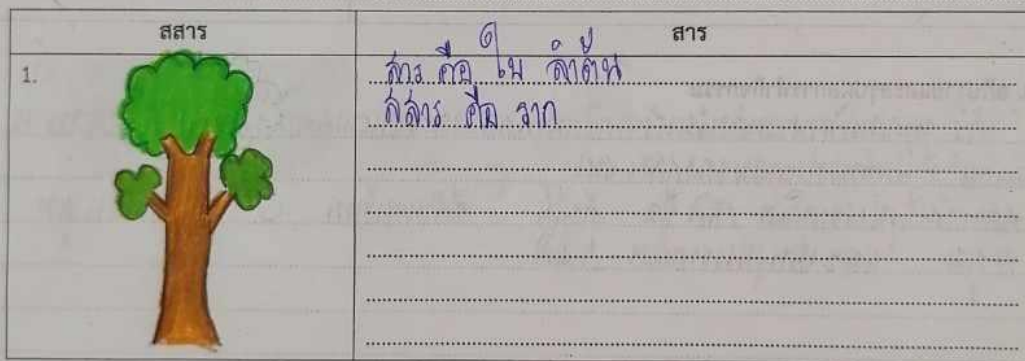 สสาร สาร
1. สาร คือ ใบ ลำต้น
สสาร คือ ราก